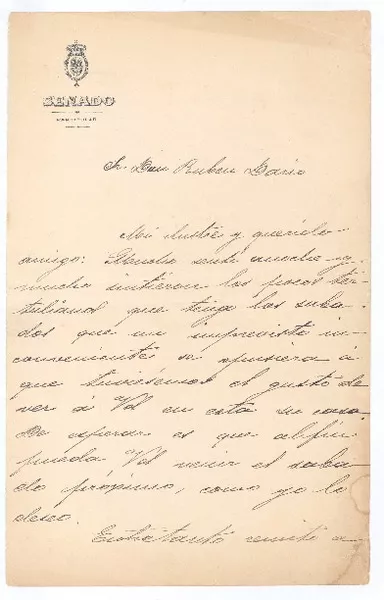 SENADO
Sr. Don Ruben Dario
Mi ilustre y querido
amigo: Mucho sentí anoche y
mucho sintieron los pocos ter-
tulianos que tengo los sába-
dos que un imprevisto in-
conveniente se opusiera á
que tuviésemos el gusto de
ver á Vd en esta su casa.
De esperar es que al fin
pueda Vd venir el sába-
do próximo, como yo lo
deseo.
Entretanto remito a-